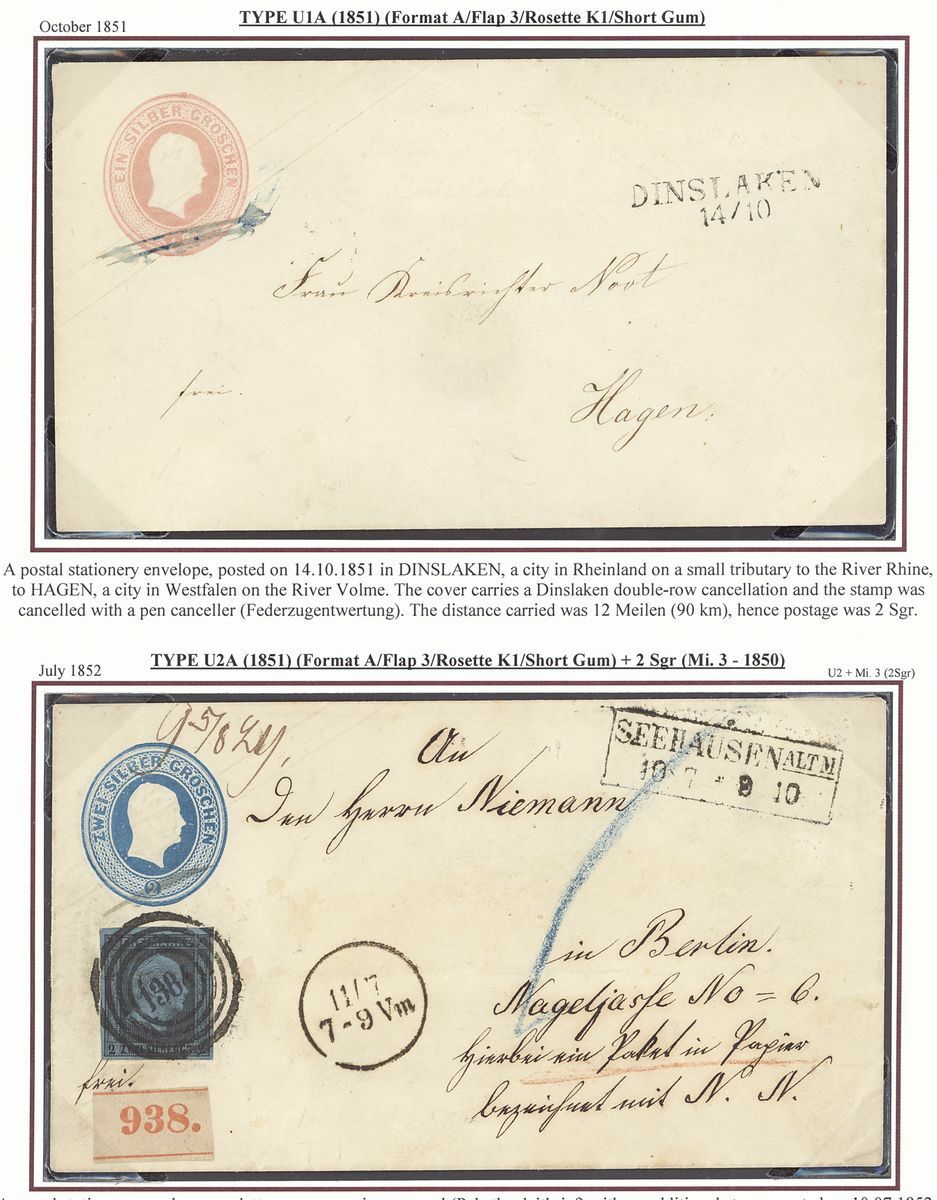 October 1851
TYPE U1A (1851) (Format A/Flap 3/Rosette K1/Short Gum)
EIN SILBER GROSCHEN
DINSLAKEN
14/10
Frau Kreisrichter Noot
frei.
Hagen.
A postal stationery envelope, posted on 14.10.1851 in DINSLAKEN, a city in Rheinland on a small tributary to the River Rhine,
to HAGEN, a city in Westfalen on the River Volme. The cover carries a Dinslaken double-row cancellation and the stamp was
cancelled with a pen canceller (Federzugentwertung). The distance carried was 12 Meilen (90 km), hence postage was 2 Sgr.
July 1852
TYPE U2A (1851) (Format A/Flap 3/Rosette K1/Short Gum) + 2 Sgr (Mi. 3 - 1850)
U2 + Mi. 3 (2Sgr)
ZWEI SILBER GROSCHEN
2
An
SEEHAUSEN ALTM
10 7 * 9 10
Den Herrn Niemann
in Berlin.
11/7
7-9 Vm
Nagelgasse No = 6.
Hierbei ein Paket in Papier
bezeichnet mit N. N.
frei.
938.